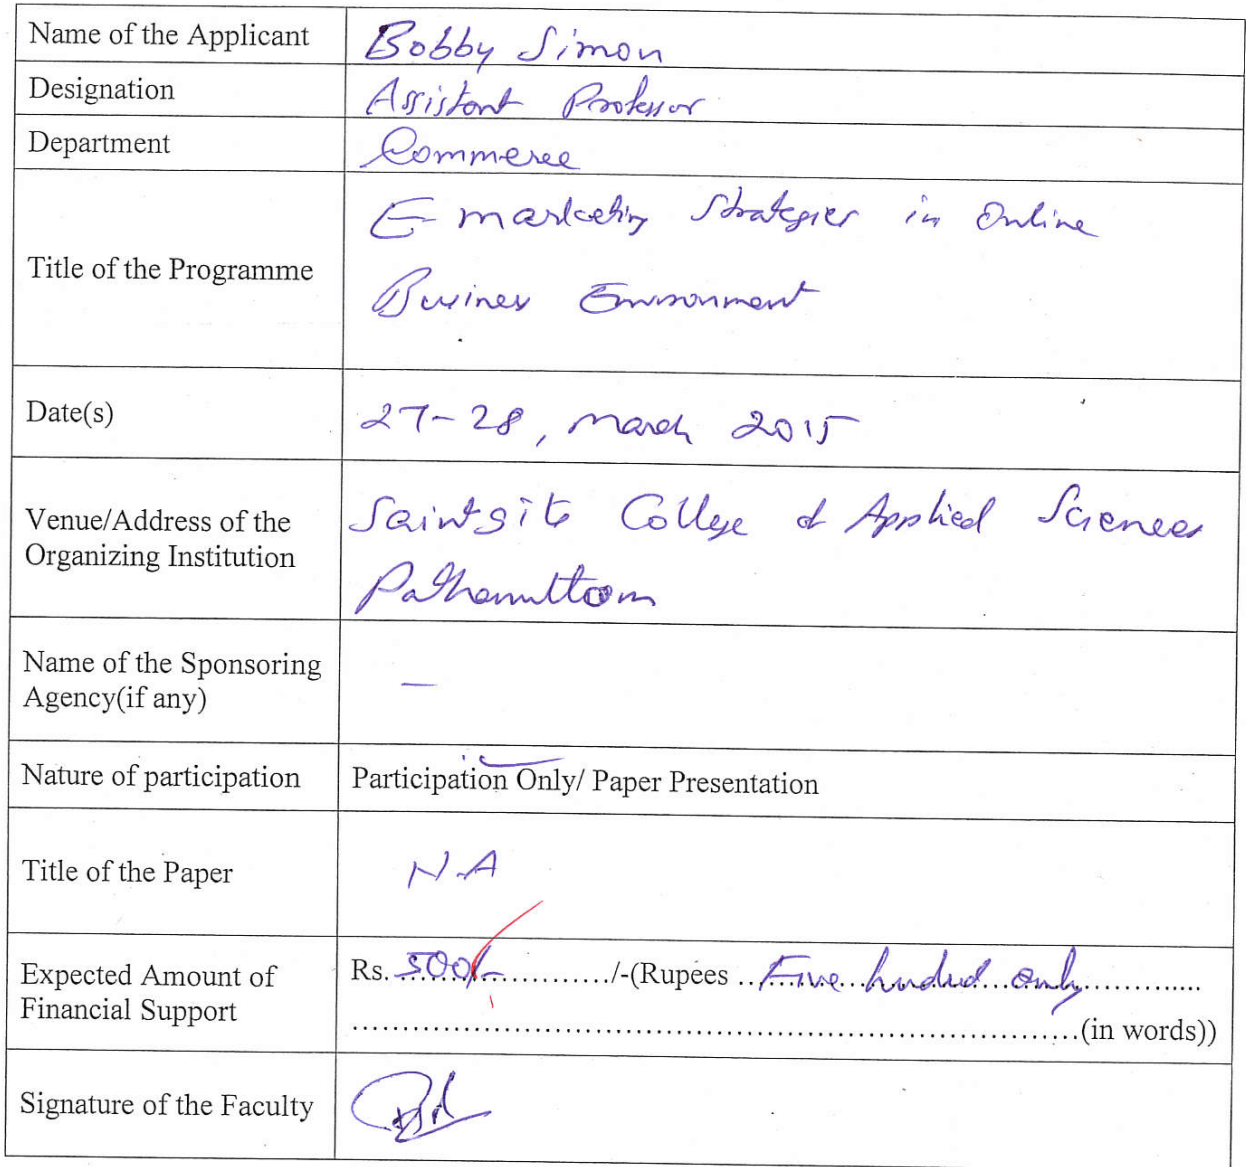 Name of the Applicant Bobby Simon
Designation Assistant Professor
Department Commerce
Title of the Programme E-marketing Strategies in Online
Business Environment
Date(s) 27-28, March 2015
Venue/Address of the Organizing Institution Saintgits College of Applied Sciences
Pathamuttom
Name of the Sponsoring Agency(if any) —
Nature of participation Participation Only/ Paper Presentation
Title of the Paper N.A
Expected Amount of Financial Support Rs. 500/-............/-(Rupees ..Five hundred only............
....................................................................(in words))
Signature of the Faculty